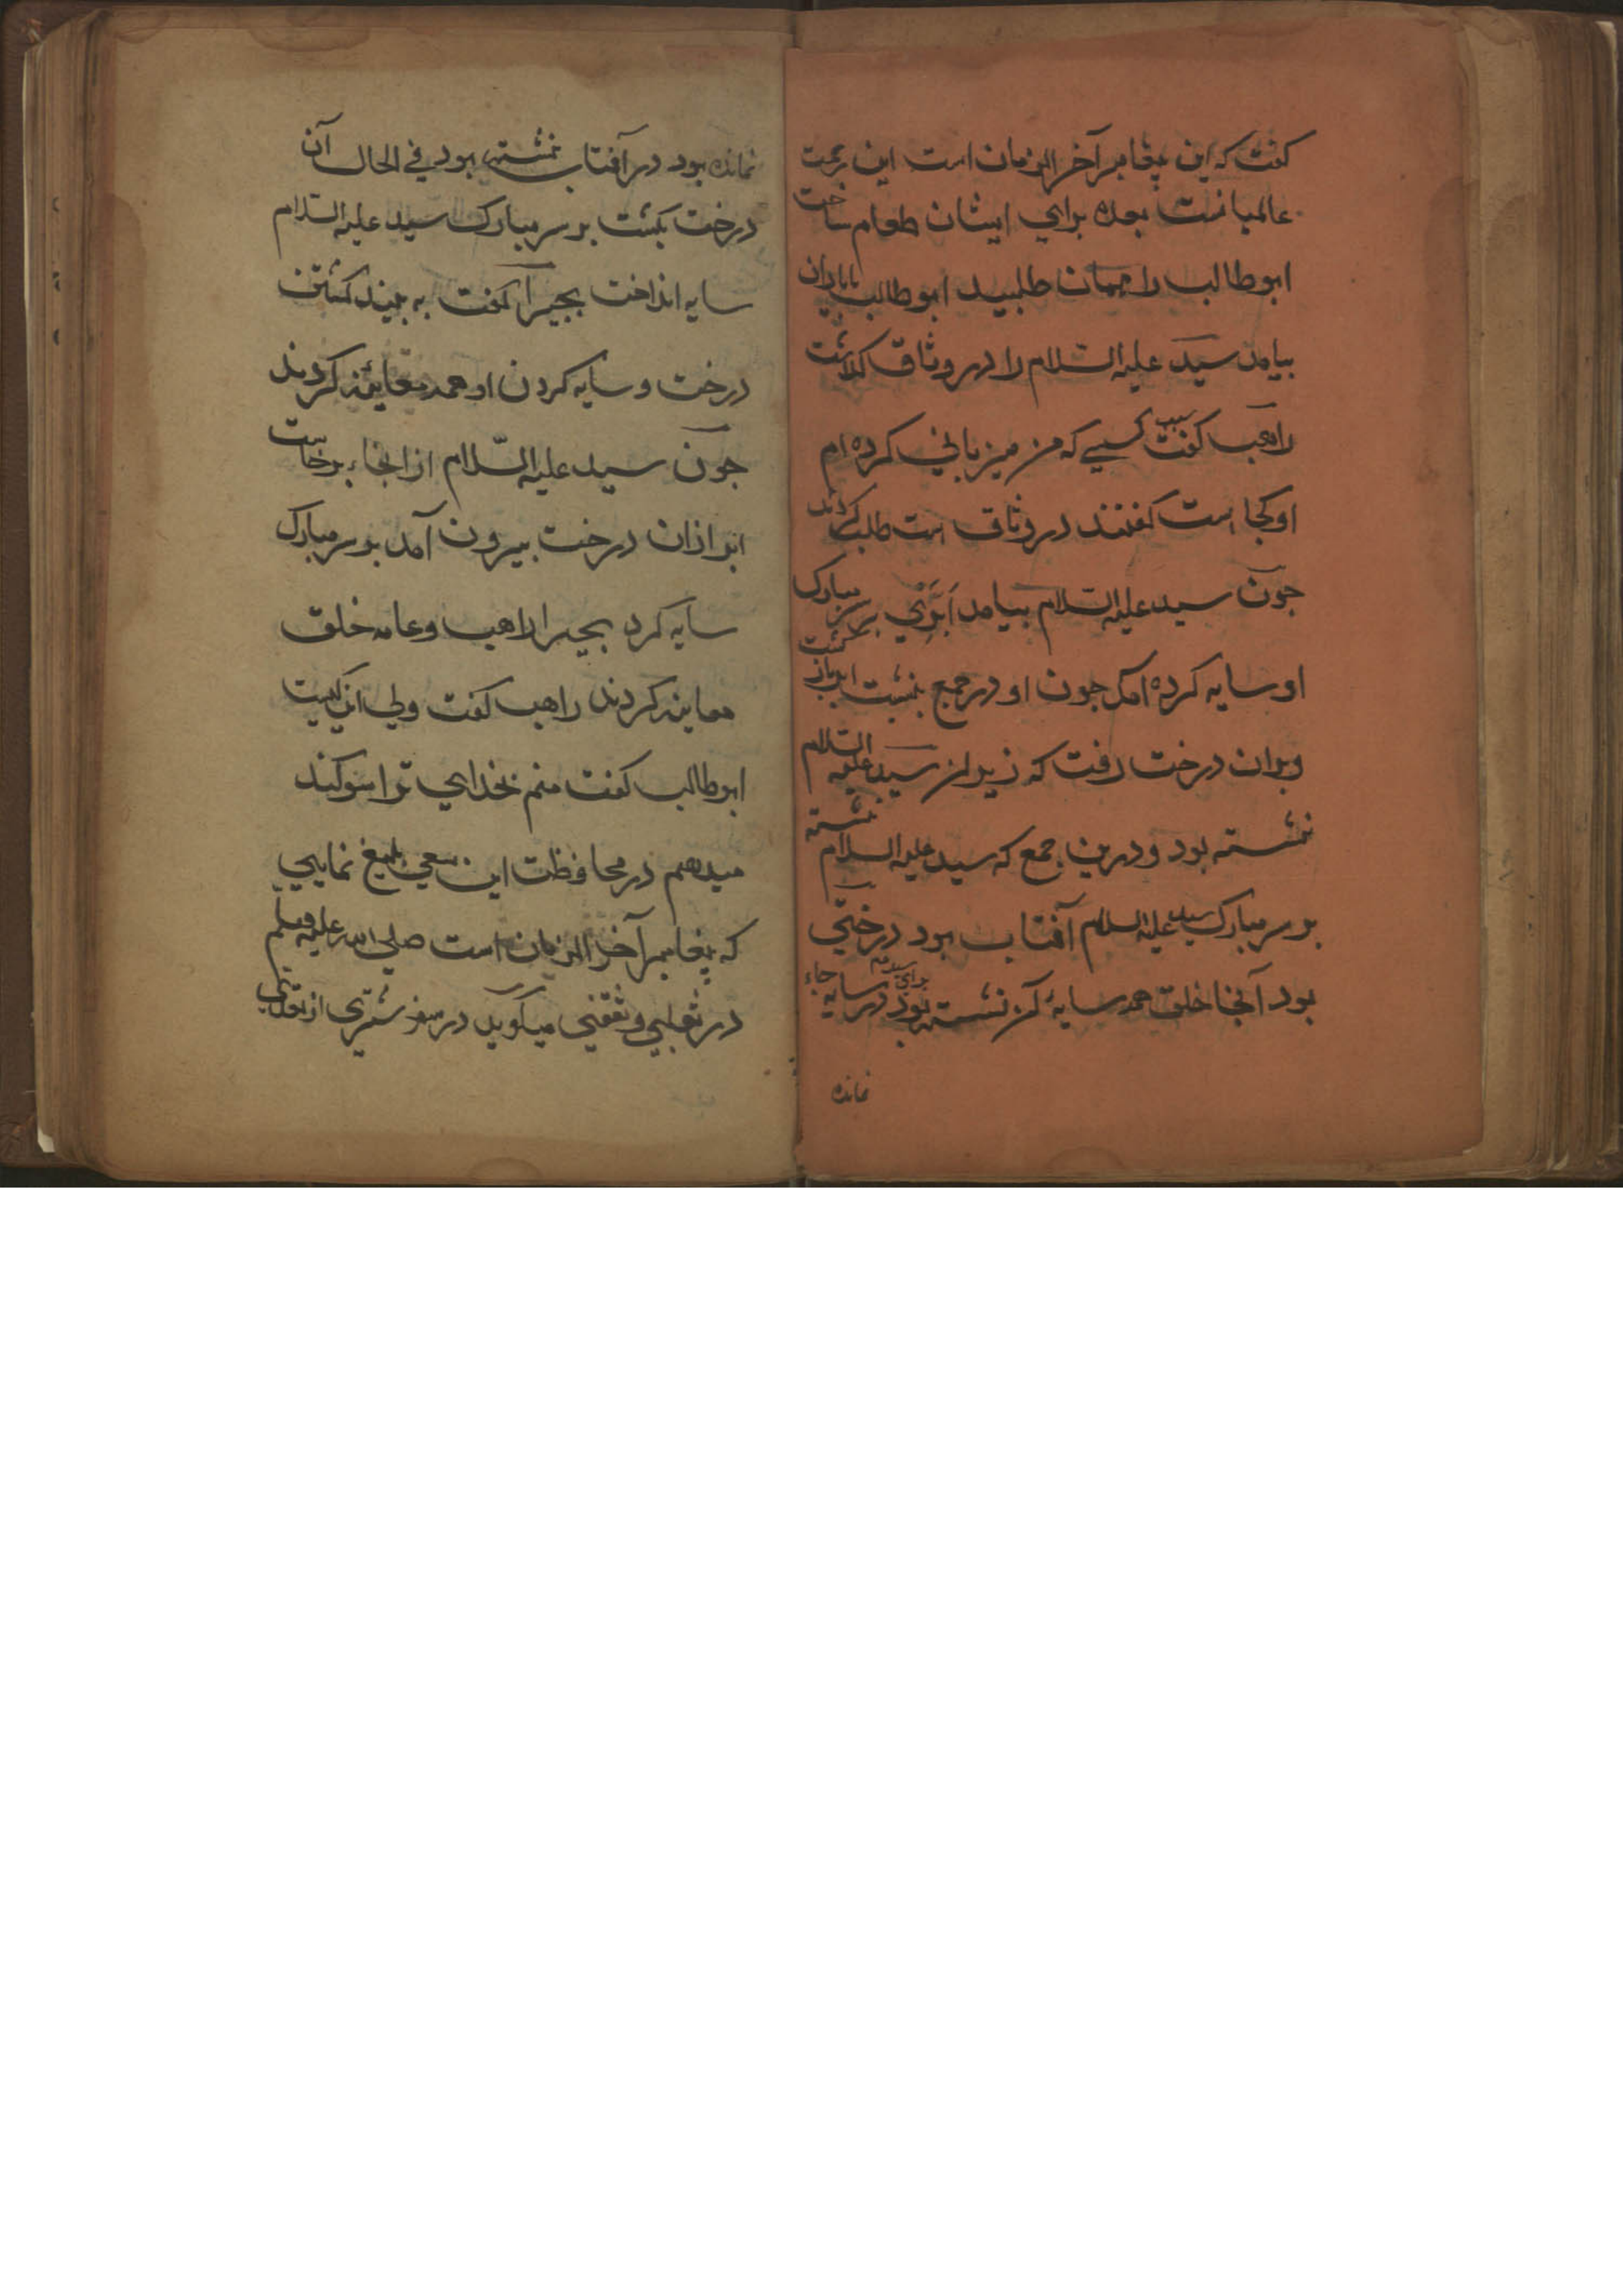 کفت که این پیغامبر آخر الزمان است این رحمت
عالمیانست بعده برای ایشان طعام ساخت
ابوطالب را مهمان طلبید ابوطالب بایاران
بیامد سید علیه السلام را در وثاق کذاشت
راهب کفت سبب کسی که من میزبانی کرده ام
او کجا است کفتند در وثاق است طلب کردند
جون سید علیه السلام بیامد ابری بر سر مبارک
او سایه کرده آمد جون او در جمع بنشست ابر باز کشت
وبران درخت رفت که زیر ان سید علیه السلام
نشسته بود و درین جمع که سید علیه السلام نشسته
بر سر مبارک سید علیه السلام آفتاب بود درختی
بود آنجا خلق همه سایهٔ آن نشسته بود برای سید در سایه جاء
نمانده
نمانده بود در آفتاب نشسته بود في الحال آن
درخت بکشت بر سر مبارک سید علیه السلام
سایه انداخت بحیرا کفت به بینید کشتن
درخت و سایه کردن او همه معاینه کردند
جون سید علیه السلام از انجاء برخاست
ابر ازان درخت بیرون آمد بر سر مبارک
سایه کرد بحیرا راهب و عامه خلق
معاینه کردند راهب کفت ولی این کیست
ابوطالب کفت منم بخدای ترا سوکند
میدهم در محافظت این سعی بلیغ نمایی
که پیغامبر آخر الزمان است صلی الله علیه وسلم
در ثعلبی و ثقفی میکوید در سفر شتری از